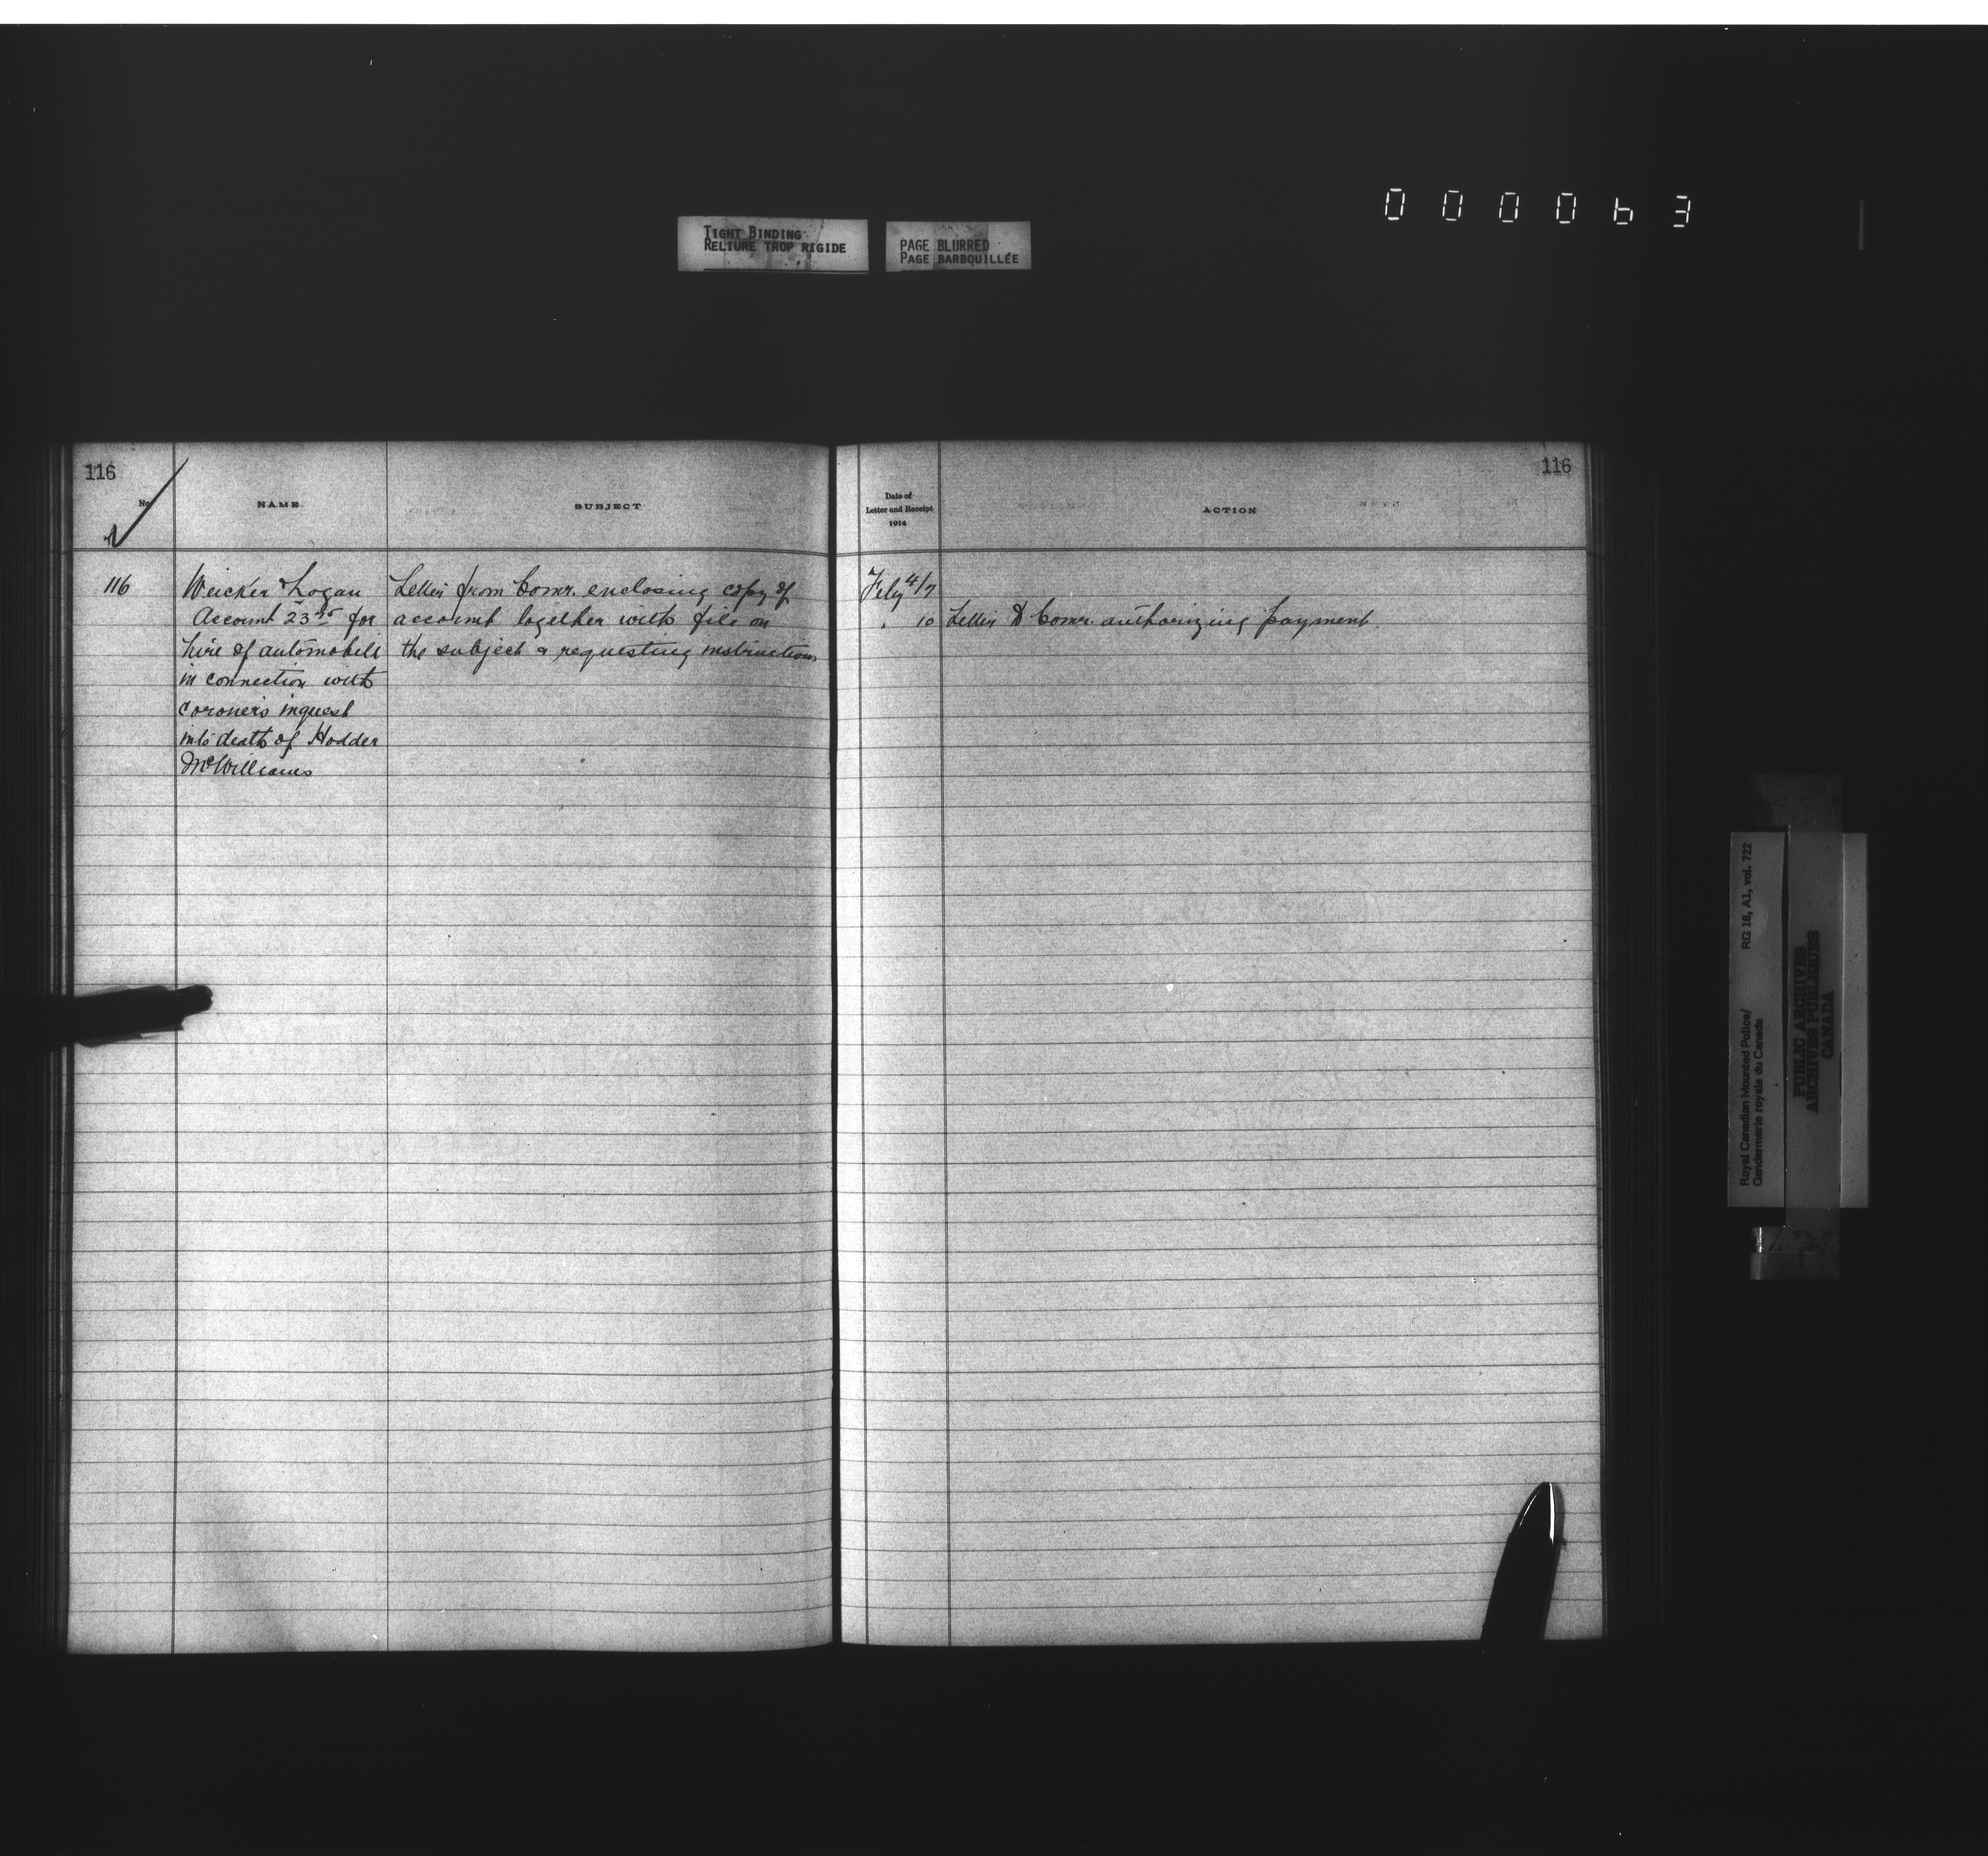 000063
TIGHT BINDING
RELIURE TROP RIGIDE
PAGE BLURRED
PAGE BARBOUILLÉE
116
No
NAME.
SUBJECT
116 Weicker & Logan
Account 23 for
hire of automobile
in connection with
coroner's inquest
into death of Hodder
McWilliams
Letter from Comr. enclosing copy of
account together with file on
the subject & requesting instructions
116
Date of
Letter and Receipt
1914
ACTION
Feby 4/7
" 10 Letter to Comr. authorizing payment.
Royal Canadian Mounted Police/
Gendarmerie royale du Canada
RG 18, A1, vol. 722
PUBLIC ARCHIVES
ARCHIVES PUBLIQUES
CANADA